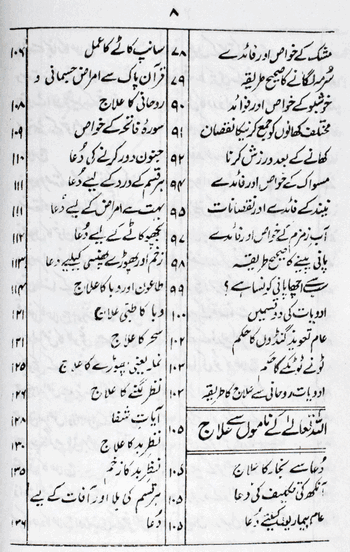 ۸
مشک کے خواص اور فائدے ۷۸
سرمہ لگانے کا صحیح طریقہ ۷۹
خوشبو کے خواص اور فوائد ۹۰
مختلف کھانوں کو جمع کرنیکا نقصان ۹۱
کھانے کے بعد ورزش کرنا ۹۴
مسواک کے خواص اور فائدے ۹۴
نیند کے فائدے اور نقصانات ۹۵
آب زمزم کے خواص اور فائدے ۹۷
پانی پینے کا صحیح طریقہ ۹۸
سب سے اچھا پانی کونسا ہے؟ ۹۹
ادویات کی دو قسمیں ۱۰۰
عام تعویذ گنڈوں کا حکم ۱۰۱
ٹونے ٹوٹکے کا حکم ۱۰۲
ادویات روحانی سے علاج کا طریقہ ۱۰۲
اللہ تعالےٰ کے ناموں سے علاج ۱۰۵
دُعا سے بخار کا علاج ۱۰۵
آنکھ کی تکلیف کی دعا ۱۰۵
عام بیماریوں کیلئے دُعا ۱۰۵
سانپ کاٹے کا عمل ۱۰۶
قرآن پاک سے امراض جسمانی و
روحانی کا علاج ۱۰۸
سورۂ فاتحہ کے خواص ۱۰۹
جنون دور کرنے کی دُعا ۱۱۰
ہر قسم کے درد کے لیے دُعا ۱۱۱
بہت سے امراض کے لیے دُعا ۱۱۱
بچھو کاٹے کے لیے دُعا ۱۱۲
زخم اور پھوڑے پھنسی کیلئے دعا ۱۱۳
طاعون اور وبا کا علاج ۱۱۴
وبا کا طبی علاج ۱۲۱
سحر کا علاج ۱۲۱
نملہ یعنی پھوڑے کا علاج ۱۲۵
نظر لگنے کا علاج ۱۲۶
آیاتِ شفا ۱۲۸
نظر بد کا علاج ۱۳۰
نظر بد کا زخم ۱۳۵
ہر قسم کی بلا اور آفات کے لیے
دُعا ۱۳۶